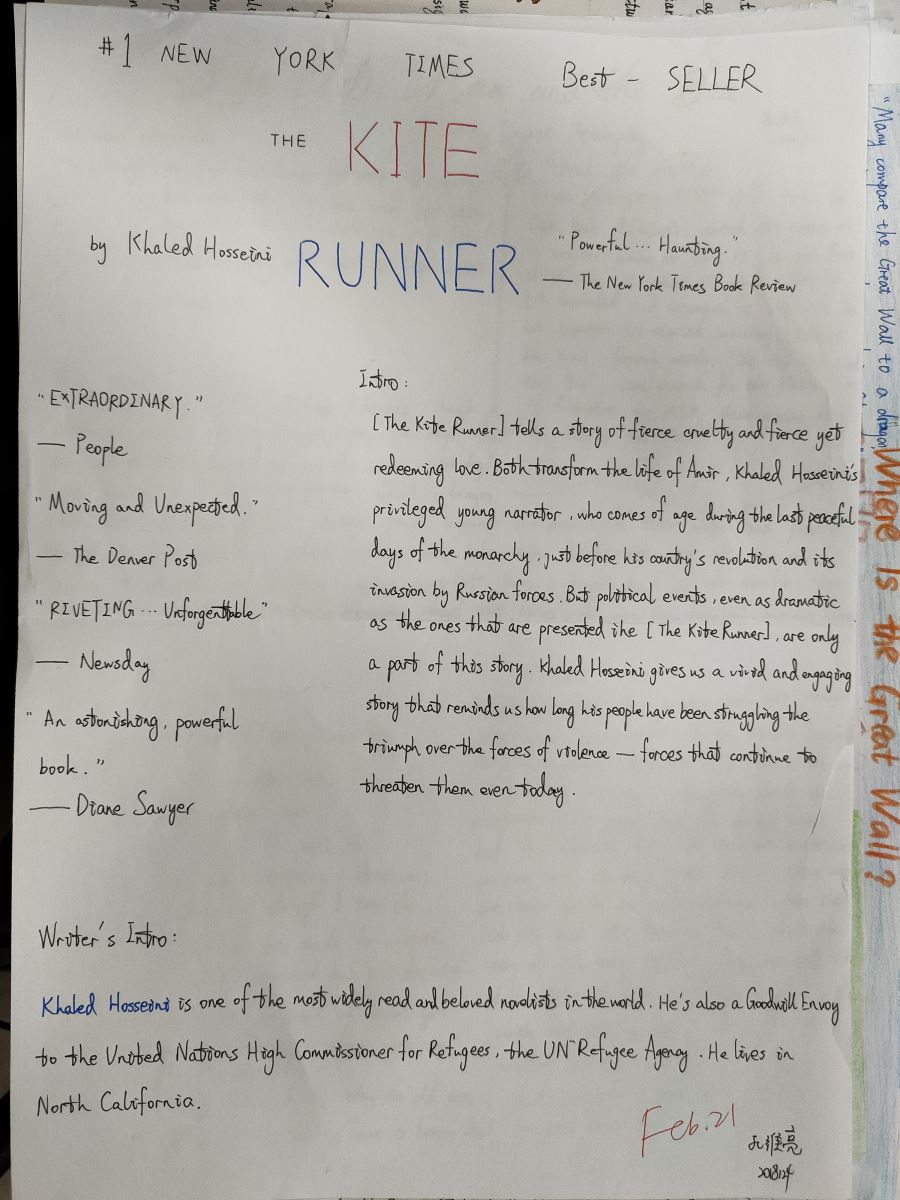 #1 NEW YORK TIMES Best - SELLER
THE KITE
by Khaled Hosseini RUNNER
"Powerful ... Haunting."
— The New York Times Book Review
"EXTRAORDINARY."
— People
"Moving and Unexpected."
— The Denver Post
"RIVETING ... Unforgettable"
— Newsday
"An astonishing, powerful
book."
— Diane Sawyer
Intro:
[The Kite Runner] tells a story of fierce cruelty and fierce yet
redeeming love. Both transform the life of Amir, Khaled Hosseini's
privileged young narrator, who comes of age during the last peaceful
days of the monarchy, just before his country's revolution and its
invasion by Russian forces. But political events, even as dramatic
as the ones that are presented ihe [The Kite Runner], are only
a part of this story. Khaled Hosseini gives us a vivid and engaging
story that reminds us how long his people have been struggling the
triumph over the forces of violence — forces that continue to
threaten them even today.
Writer's Intro:
Khaled Hosseini is one of the most widely read and beloved novelists in the world. He's also a Goodwill Envoy
to the United Nations High Commissioner for Refugees, the UN Refugee Agency. He lives in
North California.
Feb.21
"Many compare the Great Wall to a dragon
Where Is the Great Wall?